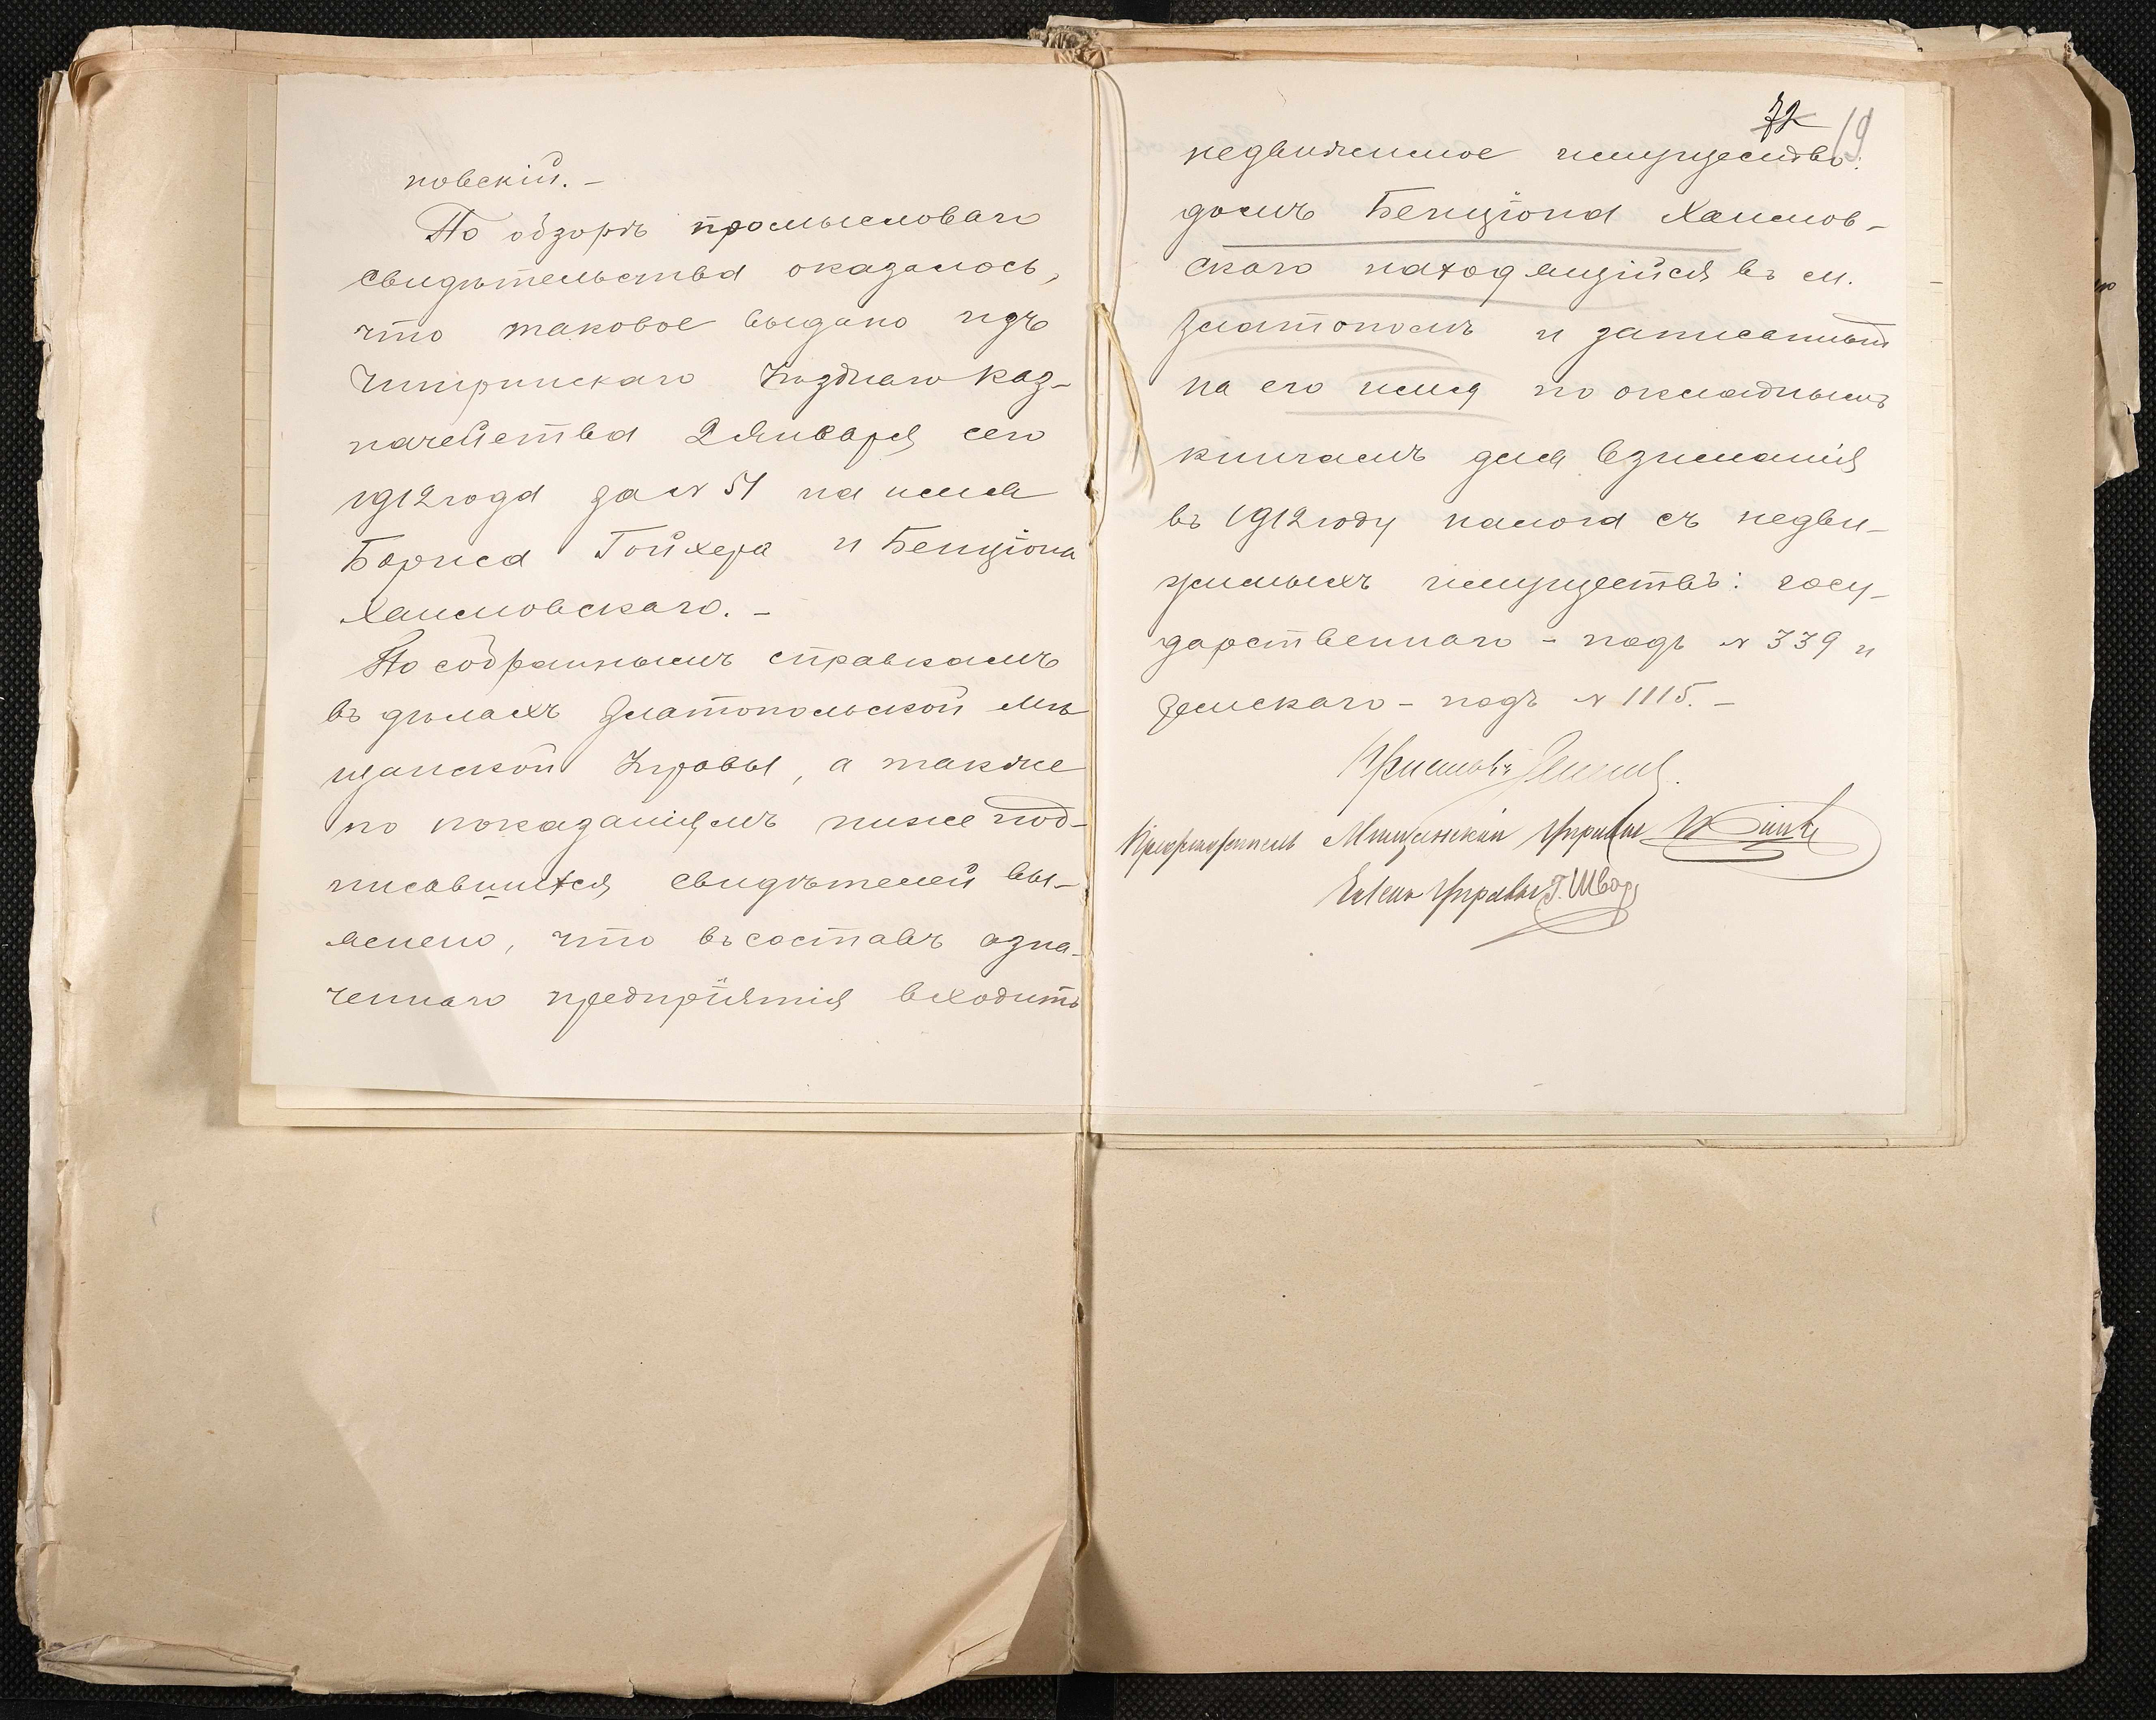 новскій. –
По обзорѣ промысловаго
свидѣтельства оказалось,
что таковое выдано изъ
Чигиринскаго Уѣзднаго Каз-
начейства 2 Января сего
1912 года за № 51 на имя
Бориса Гойхера и Бенціона
Хаимовскаго. –
По собраннымъ справкамъ
въ дѣлахъ Златопольской Мѣ
щанской Управы, а также
по показаніямъ ниже под-
писавшихся свидѣтелей вы-
яснено, что въ составъ озна-
ченнаго предпріятія входитъ
72 19
недвижимое имущество:
домъ Бенціона Хаимов-
скаго находящійся въ м.
Златополѣ и записанный
на его имя по окладнымъ
книгамъ для взиманія
въ 1912 году налога съ недви-
жимыхъ имуществъ: госу-
дарственнаго – подъ № 339 и
земскаго – подъ № 1115. –
Приставъ
Предсѣдатель Мѣщанской Управы
Членъ Управы Г. Швар